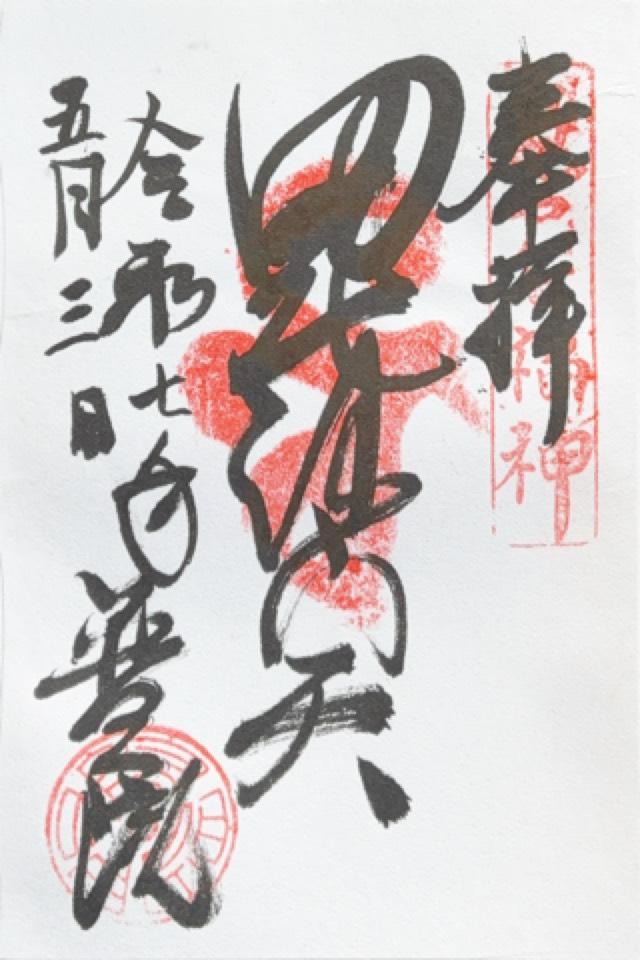 奉拝
福神
毘沙門天
令和七年
五月三日